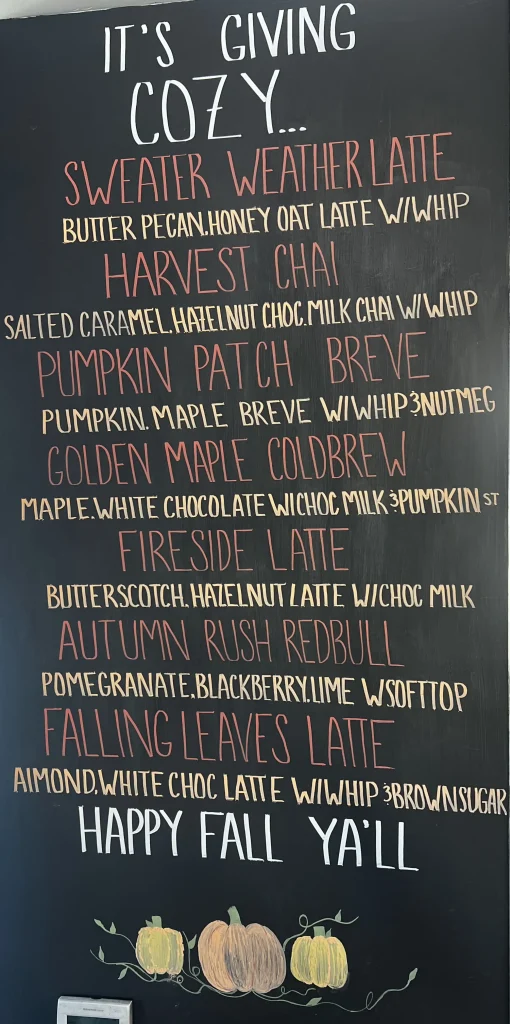 IT'S GIVING
COZY...
SWEATER WEATHER LATTE
BUTTER PECAN, HONEY OAT LATTE W/WHIP
HARVEST CHAI
SALTED CARAMEL, HAZELNUT CHOC. MILK CHAI W/WHIP
PUMPKIN PATCH BREVE
PUMPKIN, MAPLE BREVE W/WHIP & NUTMEG
GOLDEN MAPLE COLDBREW
MAPLE, WHITE CHOCOLATE W/CHOC MILK & PUMPKIN ST
FIRESIDE LATTE
BUTTERSCOTCH, HAZELNUT LATTE W/CHOC MILK
AUTUMN RUSH REDBULL
POMEGRANATE, BLACKBERRY, LIME W SOFTTOP
FALLING LEAVES LATTE
ALMOND, WHITE CHOC LATTE W/WHIP & BROWN SUGAR
HAPPY FALL YA'LL